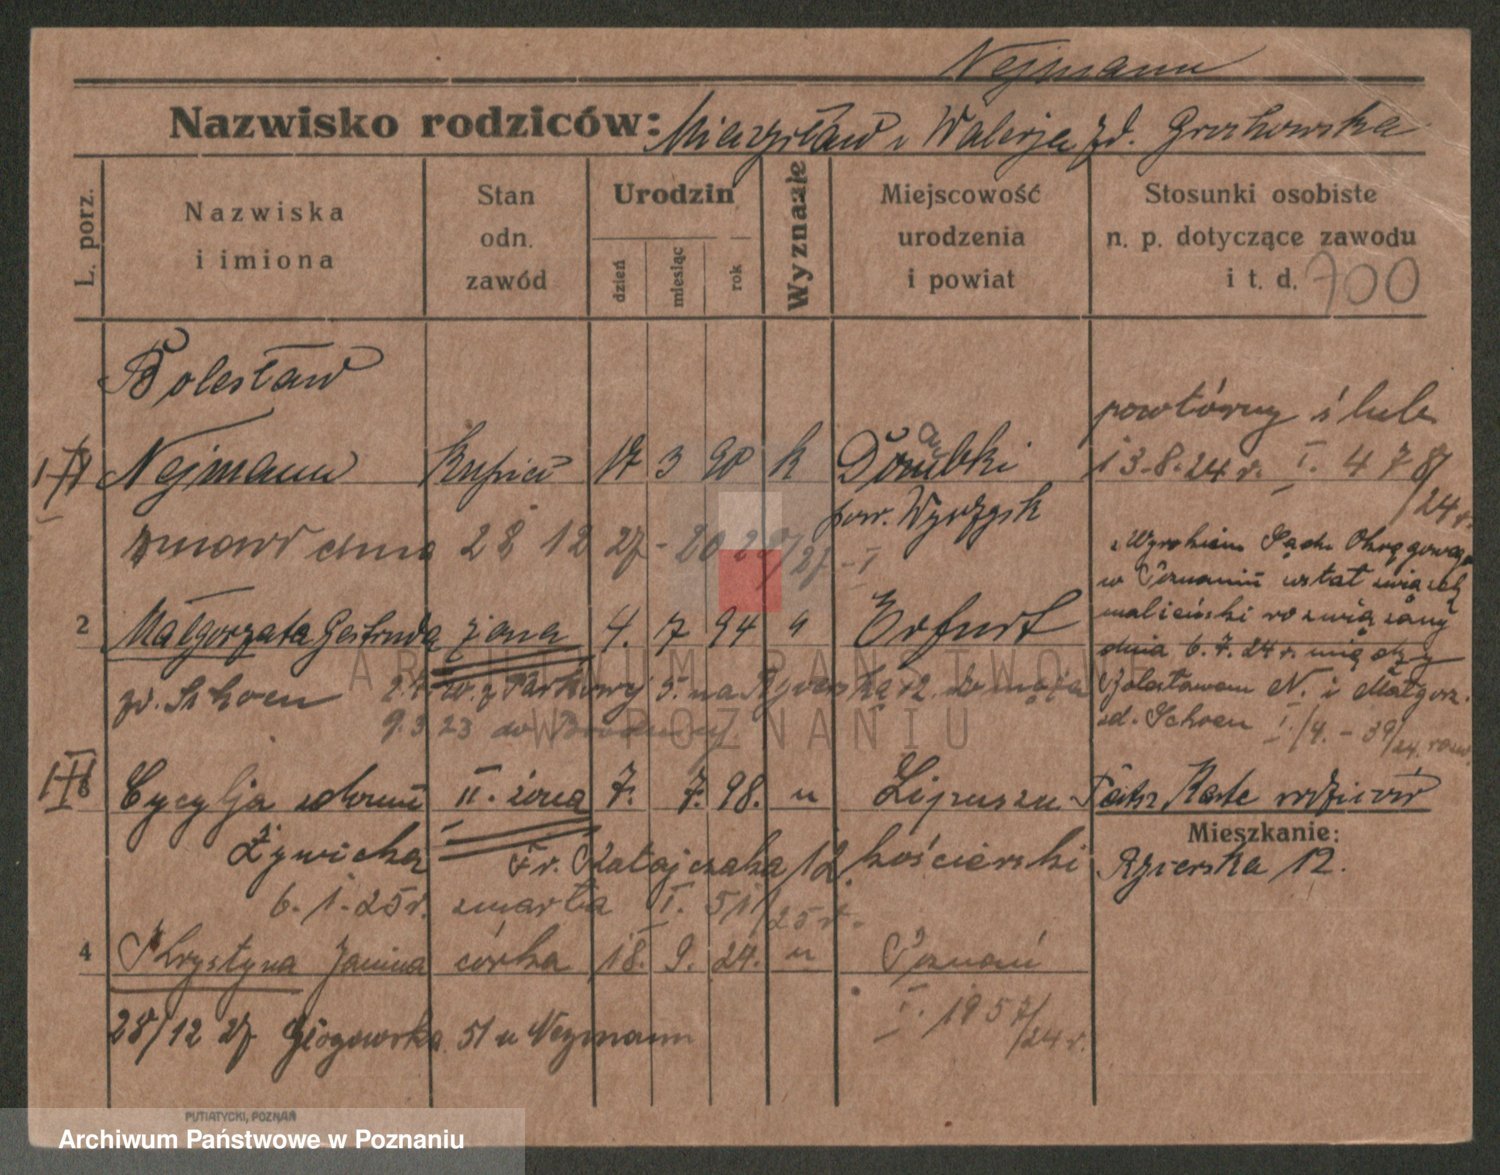 Nejmann
Nazwisko rodziców: Mieczysław i Walerja zd. Grochowska
L. porz.
Nazwiska i imiona
Stan odn. zawód
Urodzin
dzień
miesiąc
rok
Wyznanie
Miejscowość urodzenia i powiat
Stosunki osobiste n. p. dotyczące zawodu i t. d. 700
Bolesław
Nejmann kupiec 17 3 90 k
pow. Wyrzysk
powtórny ślub
13.8.24 r. I. 478/24 r.
zmarł dnia 28 12 27 -
Wyrokiem Sądu Okręgowego
w Poznaniu został związek
małżeński rozwiązany
dnia 6.7.24 r. między
Bolesławem N. i Małgorz.
zd. Schoen I./4. - 39/24.
2 Małgorzata Gertruda żona 4. 7 94 " Erfurt
zd. Schoen
9.3 23 do
Cycylja z domu II. żona 7. 7. 98. " Lipusz
Patrz Karte rodziców
Żywicka Fr. Ratajczaka 12. kościerski
6.1.25 r. zmarła I. 51/25 r.
Mieszkanie:
Rzierska 12.
4 Krystyna Janina córka 18. 9. 24. " Poznań
I. 1957/24 r.
28/12 27 Głogowska 51 u Nejmann
PUTIATYCKI, POZNAŃ
ARCHIWUM PAŃSTWOWE
W POZNANIU
Archiwum Państwowe w Poznaniu